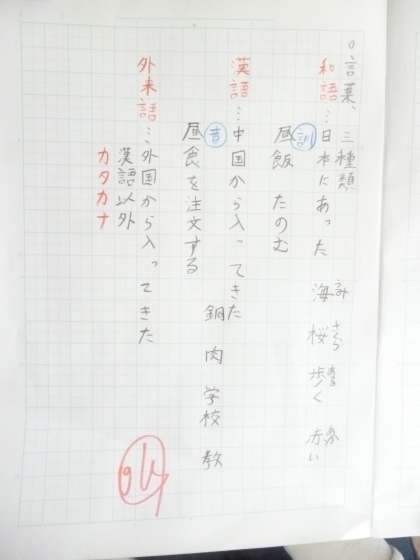 ○言葉、三種類
和語…日本にあった 海 桜 歩く 赤い
訓
昼飯 たのむ
漢語…中国から入ってきた
銅 肉 学校 教
音
昼食を注文する
外来語…外国から入ってきた
漢語以外
カタカナ